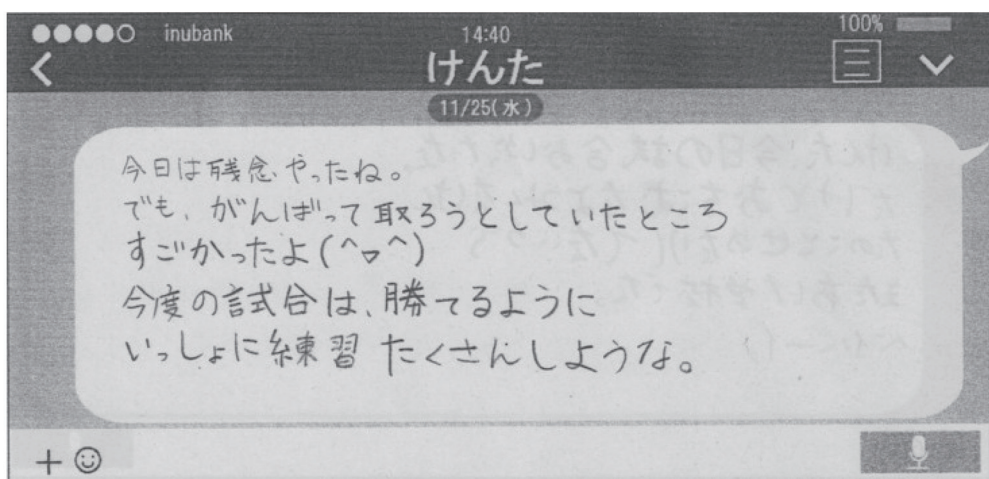 inubank 14:40 100%
けんた
11/25(水)
今日は残念やったね。
でも、がんばって取ろうとしていたところ
すごかったよ(^▽^)
今度の試合は、勝てるように
いっしょに練習 たくさんしような。